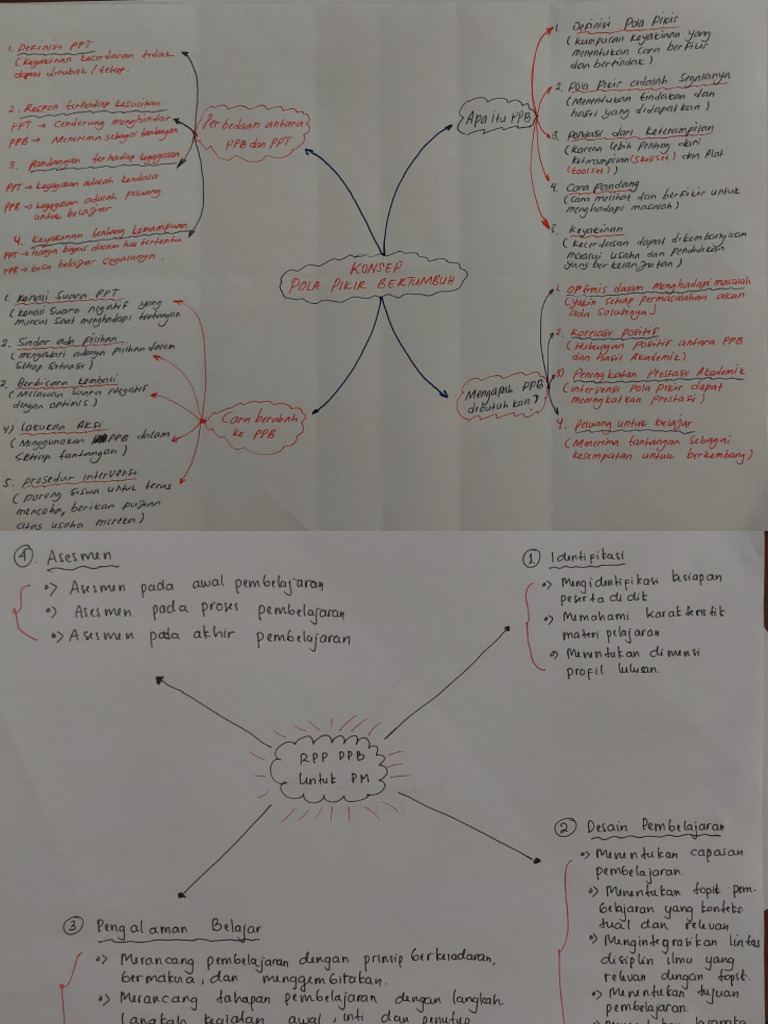 KONSEP
POLA PIKIR BERTUMBUH
Apa itu PPB
1. Definisi Pola Pikir
(kumpulan keyakinan yang
menentukan cara berfikir
dan bertindak)
2. Pola Pikir adalah Segalanya
(Menentukan tindakan dan
hasil yang didapatkan)
3. Pondasi dari Keterampilan
(Karena lebih penting dari
keterampilan (skillset) dan Alat
(toolset)
4. Cara Pandang
(Cara melihat dan berfikir untuk
menghadapi masalah)
5. Keyakinan
(kecerdasan dapat dikembangkan
melalui usaha dan pendidikan
yang berkelanjutan)
Mengapah PPB
dibutuhkan?
1. Optimis dalam menghadapi masalah
(Yakin setiap permasalahan akan
ada solusinya)
2. Korelasi Positif
(Hubungan Positif antara PPB
dan Hasil Akademik)
3) Peningkatan Prestasi Akademik
(intervensi Pola Pikir dapat
meningkatkan prestasi)
4. Peluang untuk belajar
(Menerima tantangan sebagai
kesempatan untuk berkembang)
Perbedaan antara
PPB dan PPT
1. Definisi PPT
(Keyakinan kecerdasan tidak
dapat dirubah / tetap.
2. Respon terhadap kesulitan
PPT → Cenderung menghindar
PPB → Menerima sebagai tantangan
3. Pandangan terhadap kegagalan
PPT → kegagalan adalah kendala
PPB → kegagalan adalah peluang
untuk belajar
4. Keyakinan tentang kemampuan
PPT → hanya bagus dalam hal tertentu
PPB → bisa belajar segalanya.
Cara berubah
ke PPB
1. Kenali Suara PPT
(kenali suara negatif yang
muncul saat menghadapi tantangan
2. Sadar ada pilihan
(menyadari adanya pilihan dalam
setiap situasi)
3. Berbicara kembali
(Melawan suara negatif
dengan optimis)
4) Lakukan Aksi
(Menggunakan PPB dalam
setiap tantangan)
5. Prosedur intervensi
(Dorong siswa untuk terus
mencoba, berikan pujian
atas usaha mereka)
RPP PPB
Untuk PM
1 Identifikasi
Mengidentifikasi kesiapan
peserta didit
Memahami karakteristik
materi pelajaran
Menentukan dimensi
profil lulusan.
2 Desain Pembelajaran
Menentukan capaian
pembelajaran.
Menentukan topik pem-
belajaran yang konteks
tual dan relevan
Mengintegrasikan lintas
disiplin ilmu yang
relevan dengan topik.
Menentukan tujuan
pembelajaran.
3 Pengalaman Belajar
Merancang pembelajaran dengan prinsip berkesadaran,
bermakna, dan menggembirakan.
Merancang tahapan pembelajaran dengan langkah-
langkah kegiatan awal, inti dan penutup
4. Asesmen
Asesmen pada awal pembelajaran
Asesmen pada proses pembelajaran
Asesmen pada akhir pembelajaran